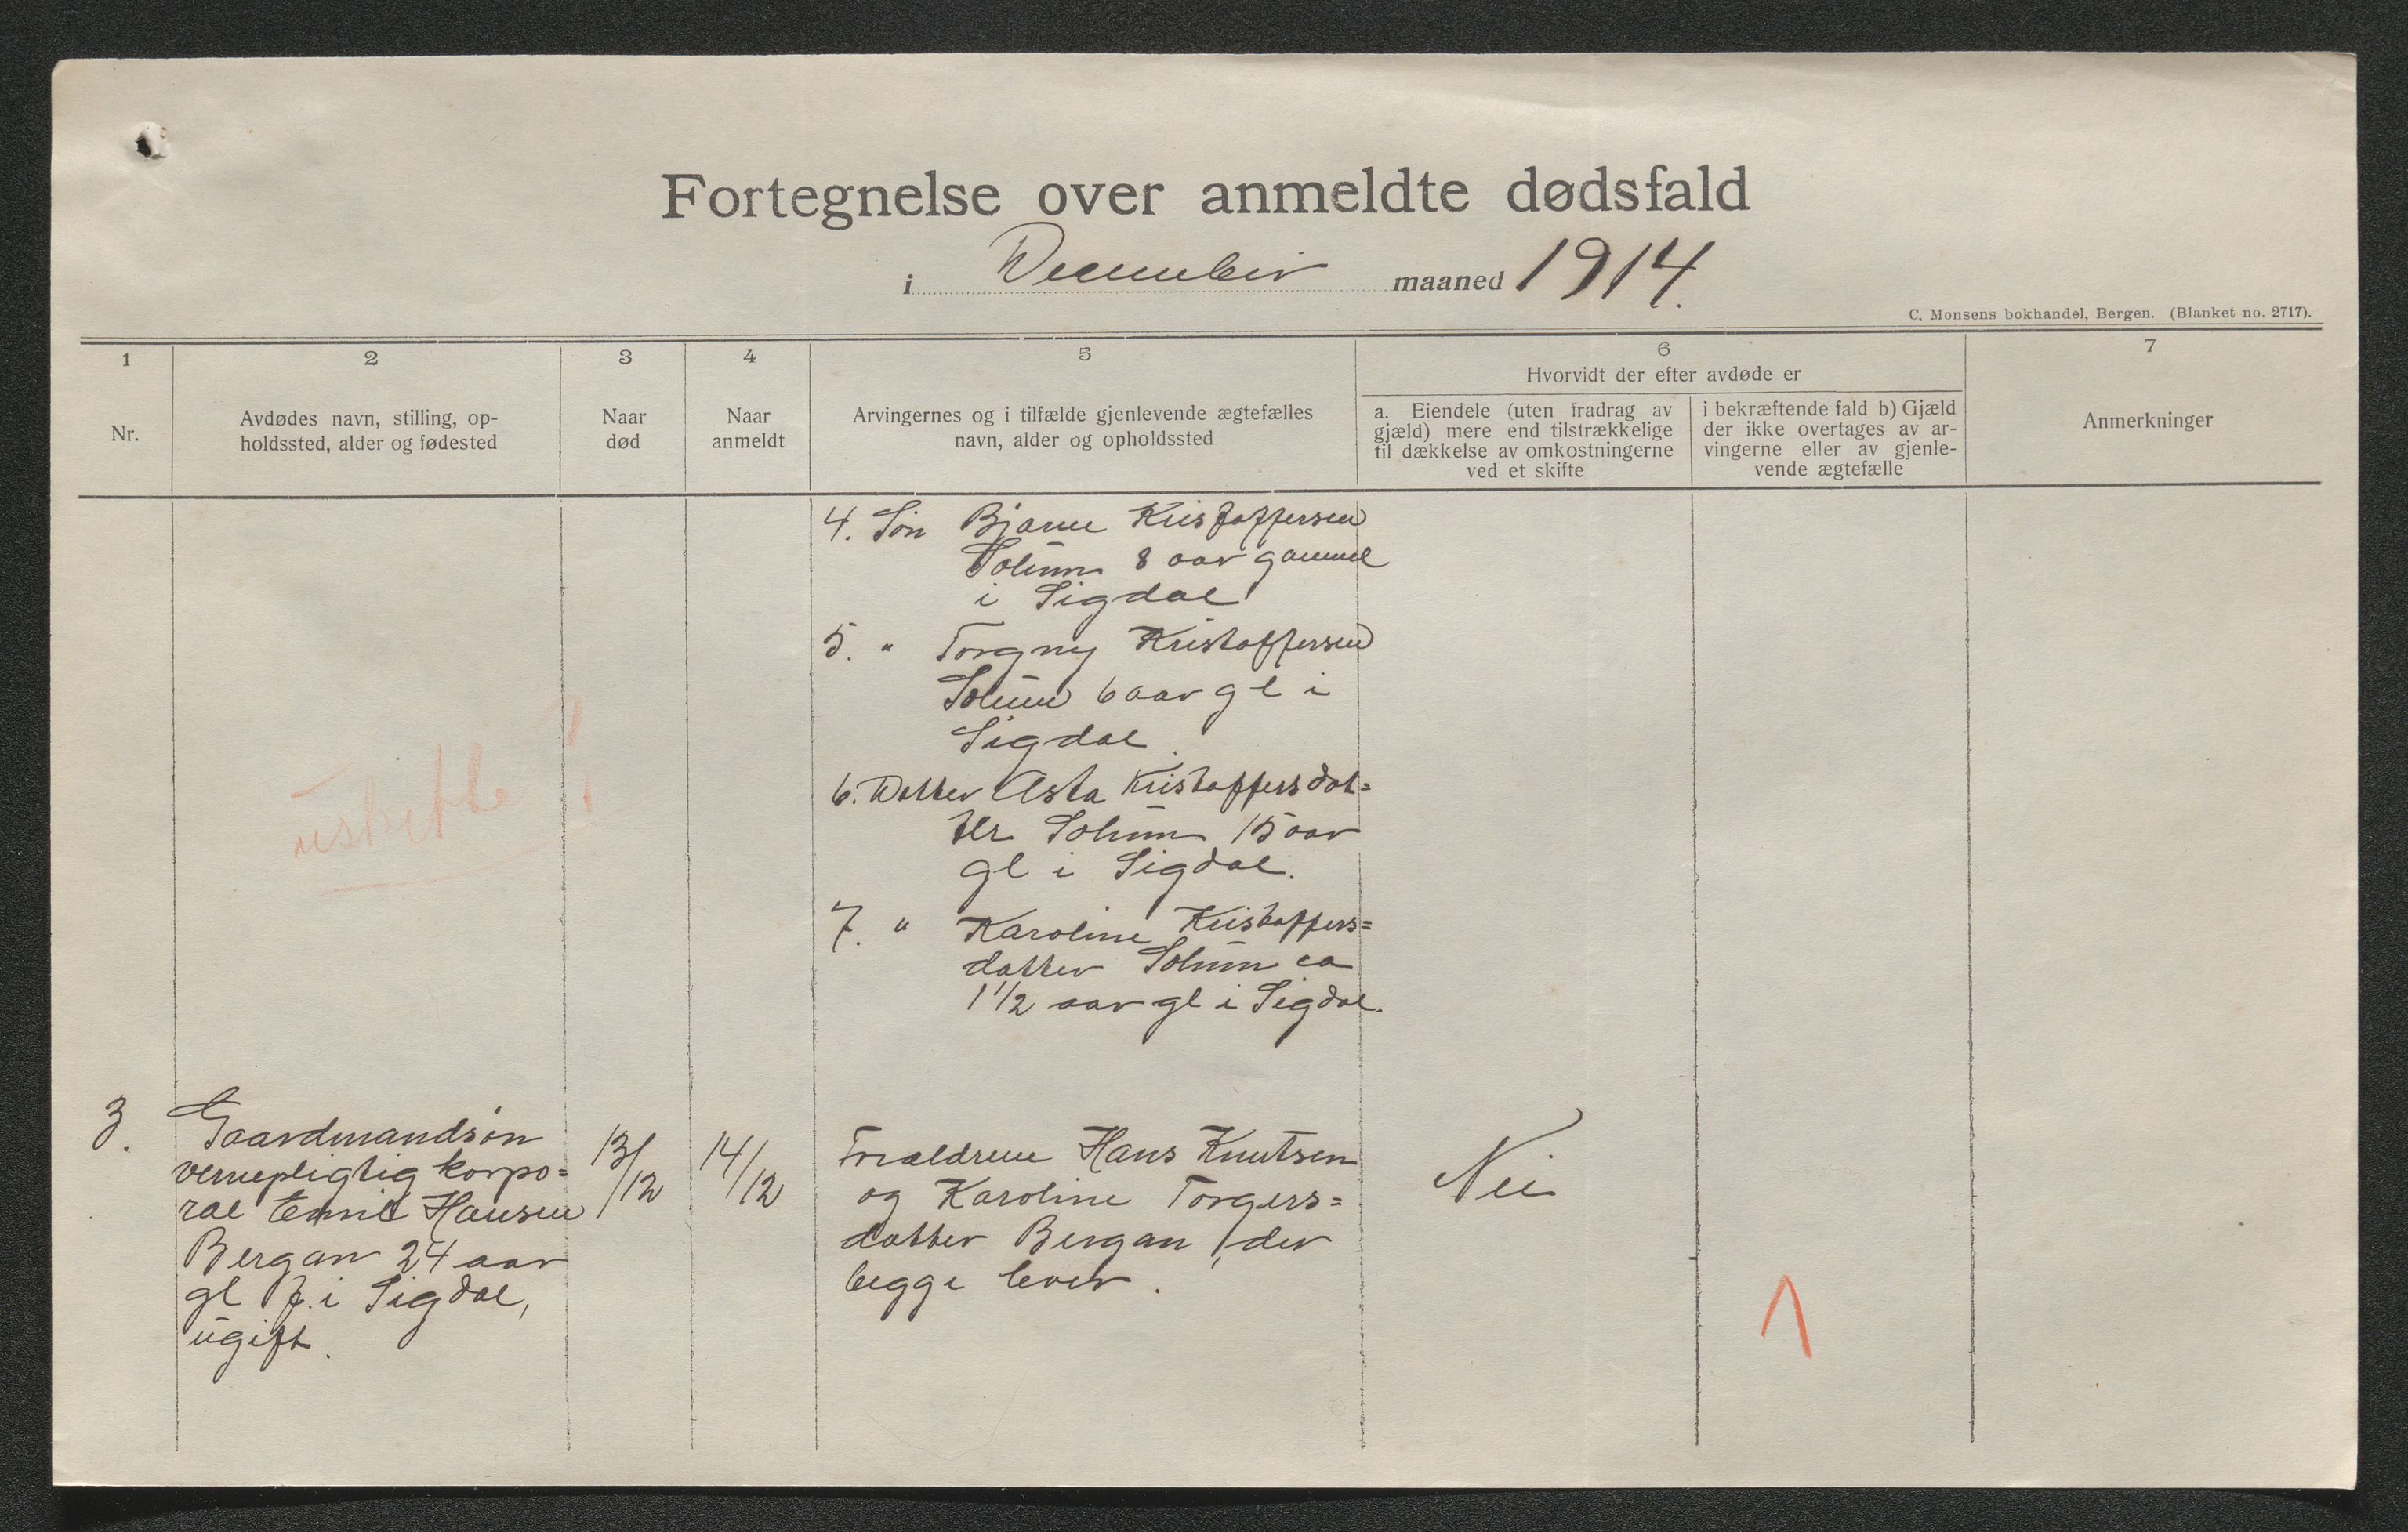 Fortegnelse over anmeldte dødsfald
i December maaned 1914.
C. Monsens bokhandel, Bergen. (Blanket no. 2717).
1
2
3
4
5
6
7
Nr.
Avdødes navn, stilling, op-
holdssted, alder og fødested
Naar
død
Naar
anmeldt
Arvingernes og i tilfælde gjenlevende ægtefælles
navn, alder og opholdssted
Hvorvidt der efter avdøde er
a. Eiendele (uten fradrag av
gjæld) mere end tilstrækkelige
til dækkelse av omkostningerne
ved et skifte
i bekræftende fald b) Gjæld
der ikke overtages av ar-
vingerne eller av gjenle-
vende ægtefælle
Anmerkninger
4. Søn Bjarne Kristoffersen
Solum 8 aar gammel
i Sigdal
5. " Torgny Kristoffersen
Solum 6 aar gl i
Sigdal.
6. Datter Asta Kristoffersdat=
ter Solum 15 aar
gl i Sigdal.
7. " Karoline Kristoffers=
datter Solum ca
1 1/2 aar gl i Sigdal.
uskifte
3.
Gaardmandsøn
vernepligtig korpo=
ral Emil Hansen
Bergan 24 aar
gl f. i Sigdal,
ugift.
13/12
14/12
Forældrene Hans Knutsen
og Karoline Torgers=
datter Bergan, der
begge lever.
Nei